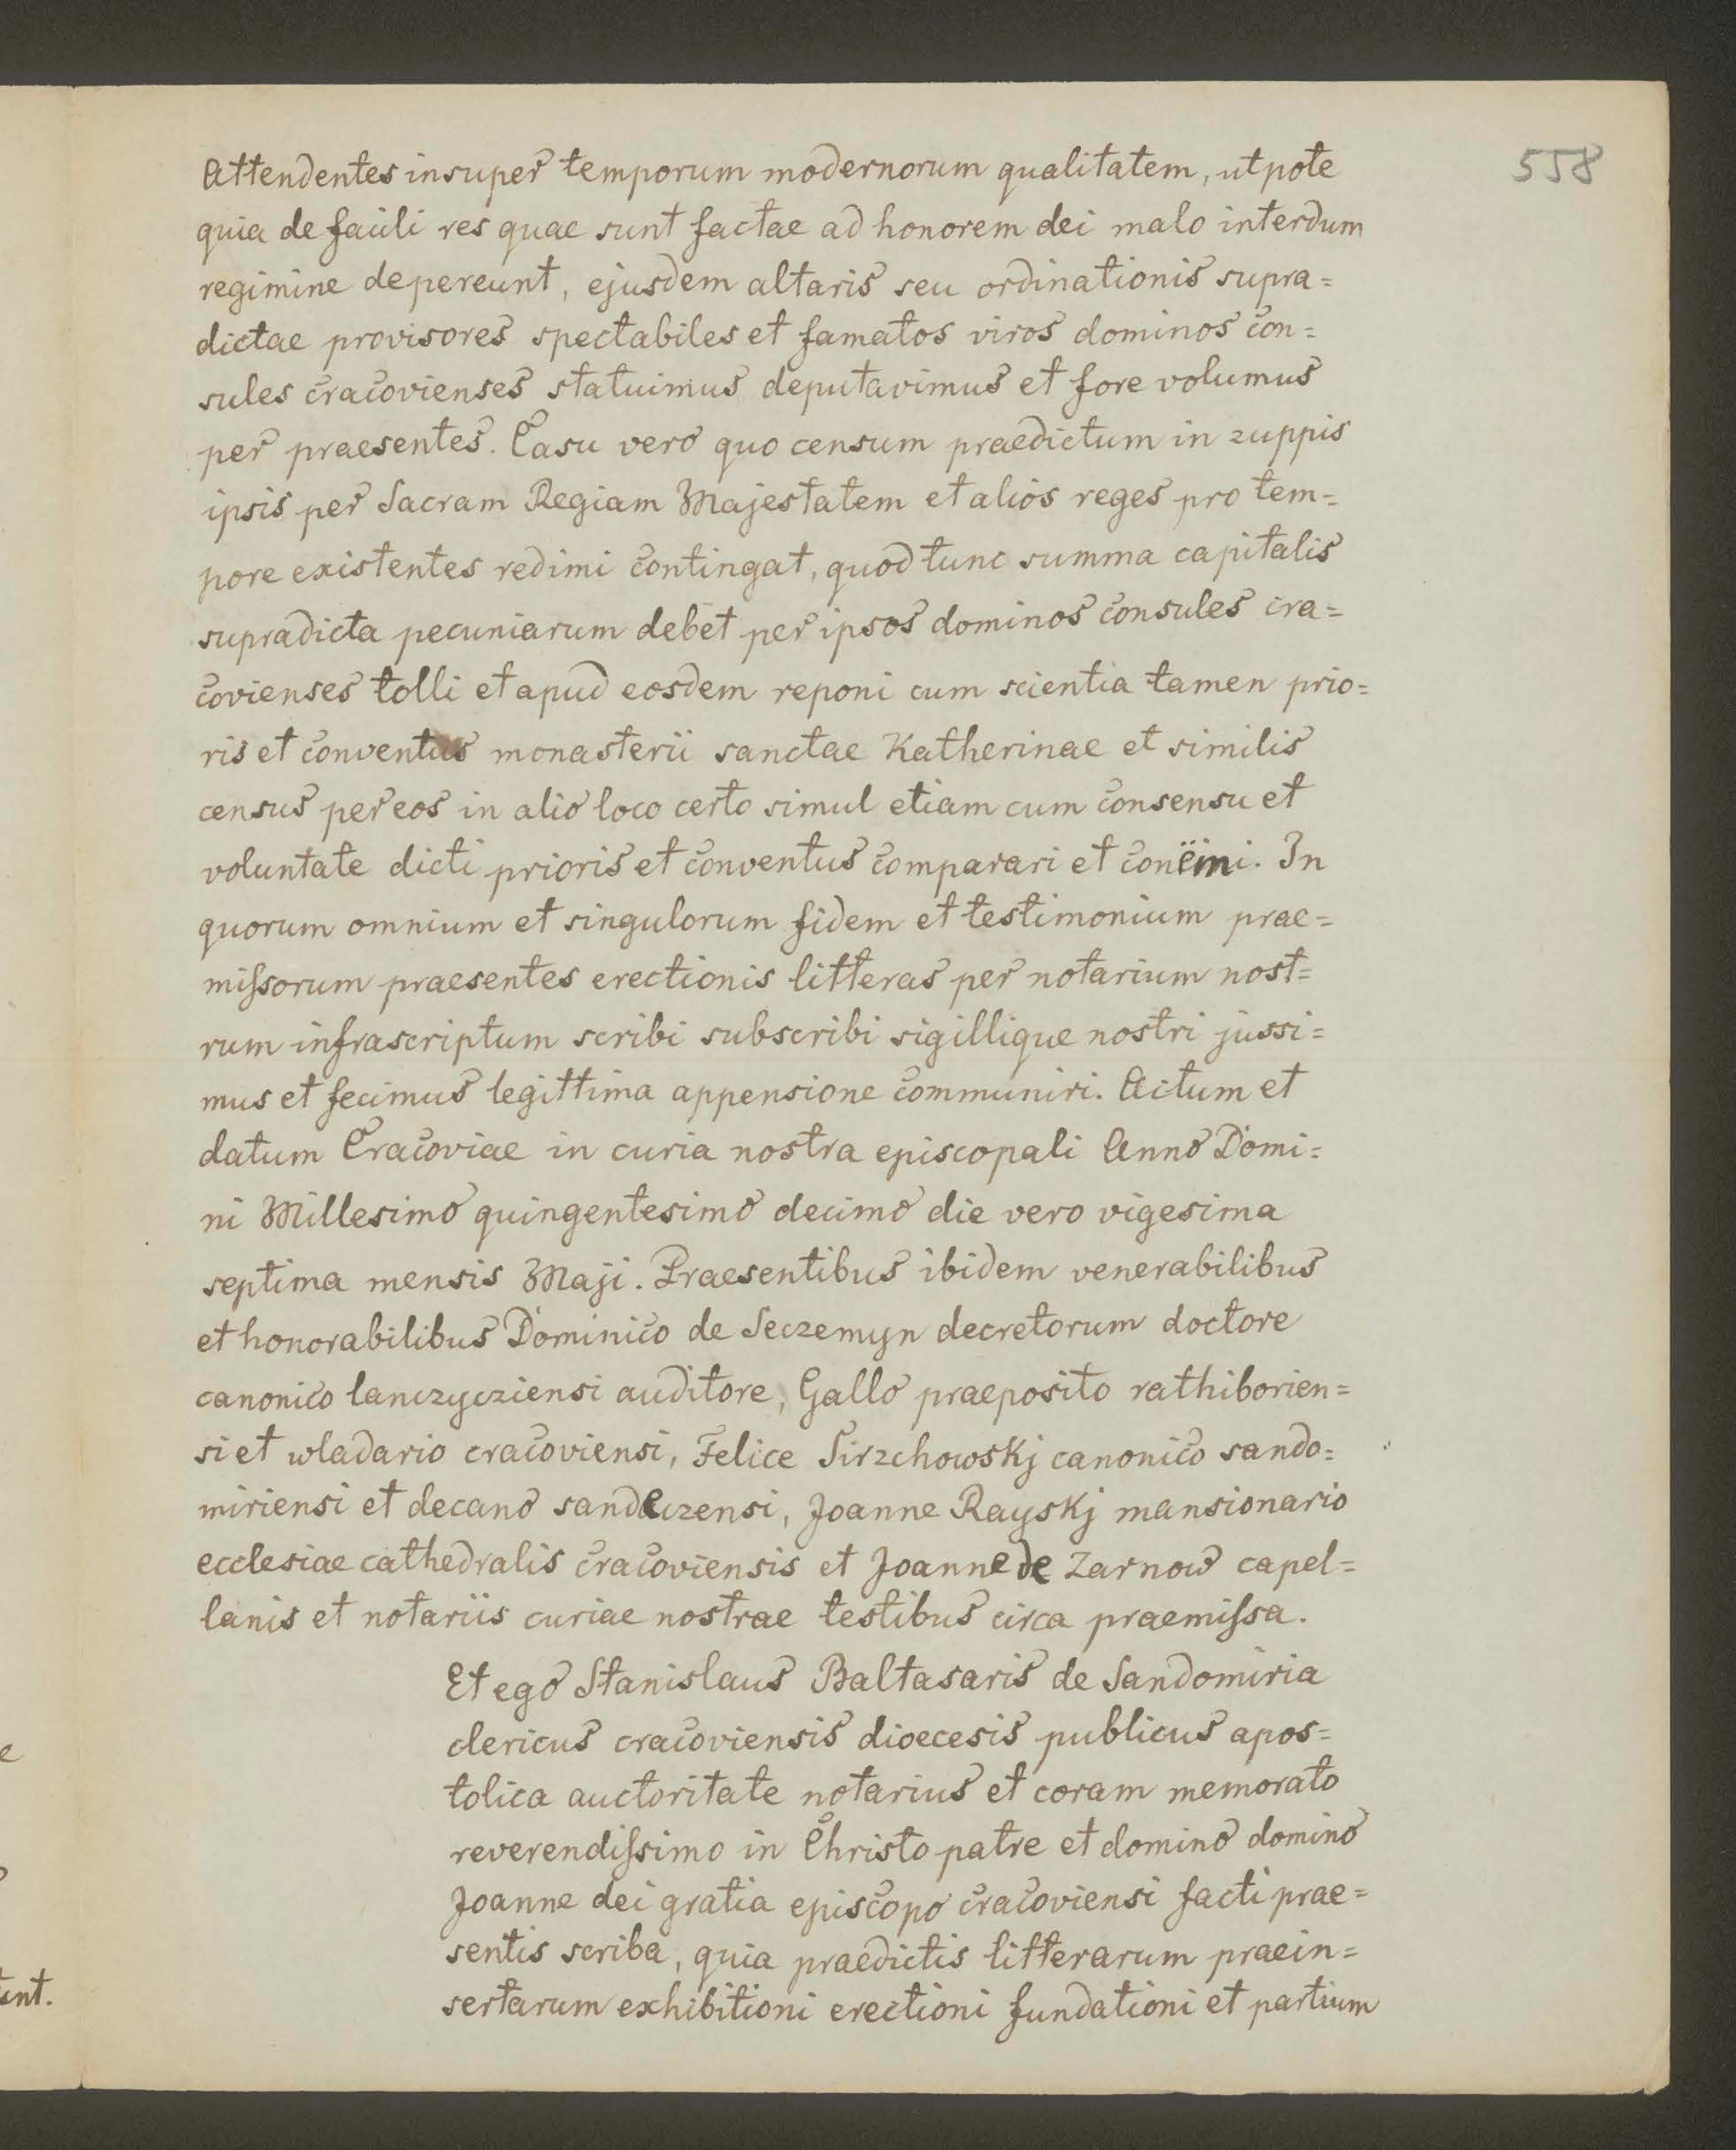 558
Attendentes insuper temporum modernorum qualitatem, utpote
quia de facili res quae sunt factae ad honorem dei malo interdum
regimine depereunt, ejusdem altaris seu ordinationis supra=
dictae provisores spectabiles et famatos viros dominos con=
sules cracovienses statuimus deputavimus et fore volumus
per praesentes. Casu vero quo censum praedictum in zuppis
ipsis per Sacram Regiam Majestatem et alios reges pro tem=
pore existentes redimi contingat, quod tunc summa capitalis
supradicta pecuniarum debet per ipsos dominos consules cra=
covienses tolli et apud eosdem reponi cum scientia tamen prio=
ris et conventus monasterii sanctae Katherinae et similis
census per eos in alio loco certo simul etiam cum consensu et
voluntate dicti prioris et conventus comparari et conëmi. In
quorum omnium et singulorum fidem et testimonium prae=
miſsorum praesentes erectionis litteras per notarium nost=
rum infrascriptum scribi subscribi sigillique nostri jussi=
mus et fecimus legittima appensione communiri. Actum et
datum Cracoviae in curia nostra episcopali Anno Domi=
ni Millesimo quingentesimo decimo die vero vigesima
septima mensis Maji. Praesentibus ibidem venerabilibus
et honorabilibus Dominico de Seczemyn decretorum doctore
canonico lanczycziensi auditore, Gallo praeposito rathiborien=
si et wladario cracoviensi, Felice Sirzchowskj canonico sando=
miriensi et decano sandeczensi, Joanne Rayskj mansionario
ecclesiae cathedralis cracoviensis et Joanne de Zarnow capel=
lanis et notariis curiae nostrae testibus circa praemiſsa.
Et ego Stanislaus Baltasaris de Sandomiria
clericus cracoviensis dioecesis publicus apos=
tolica auctoritate notarius et coram memorato
reverendiſsimo in Christo patre et domino domino
Joanne dei gratia episcopo cracoviensi facti prae=
sentis scriba, quia praedictis litterarum praein=
sertarum exhibitioni erectioni fundationi et partium
e
ent.